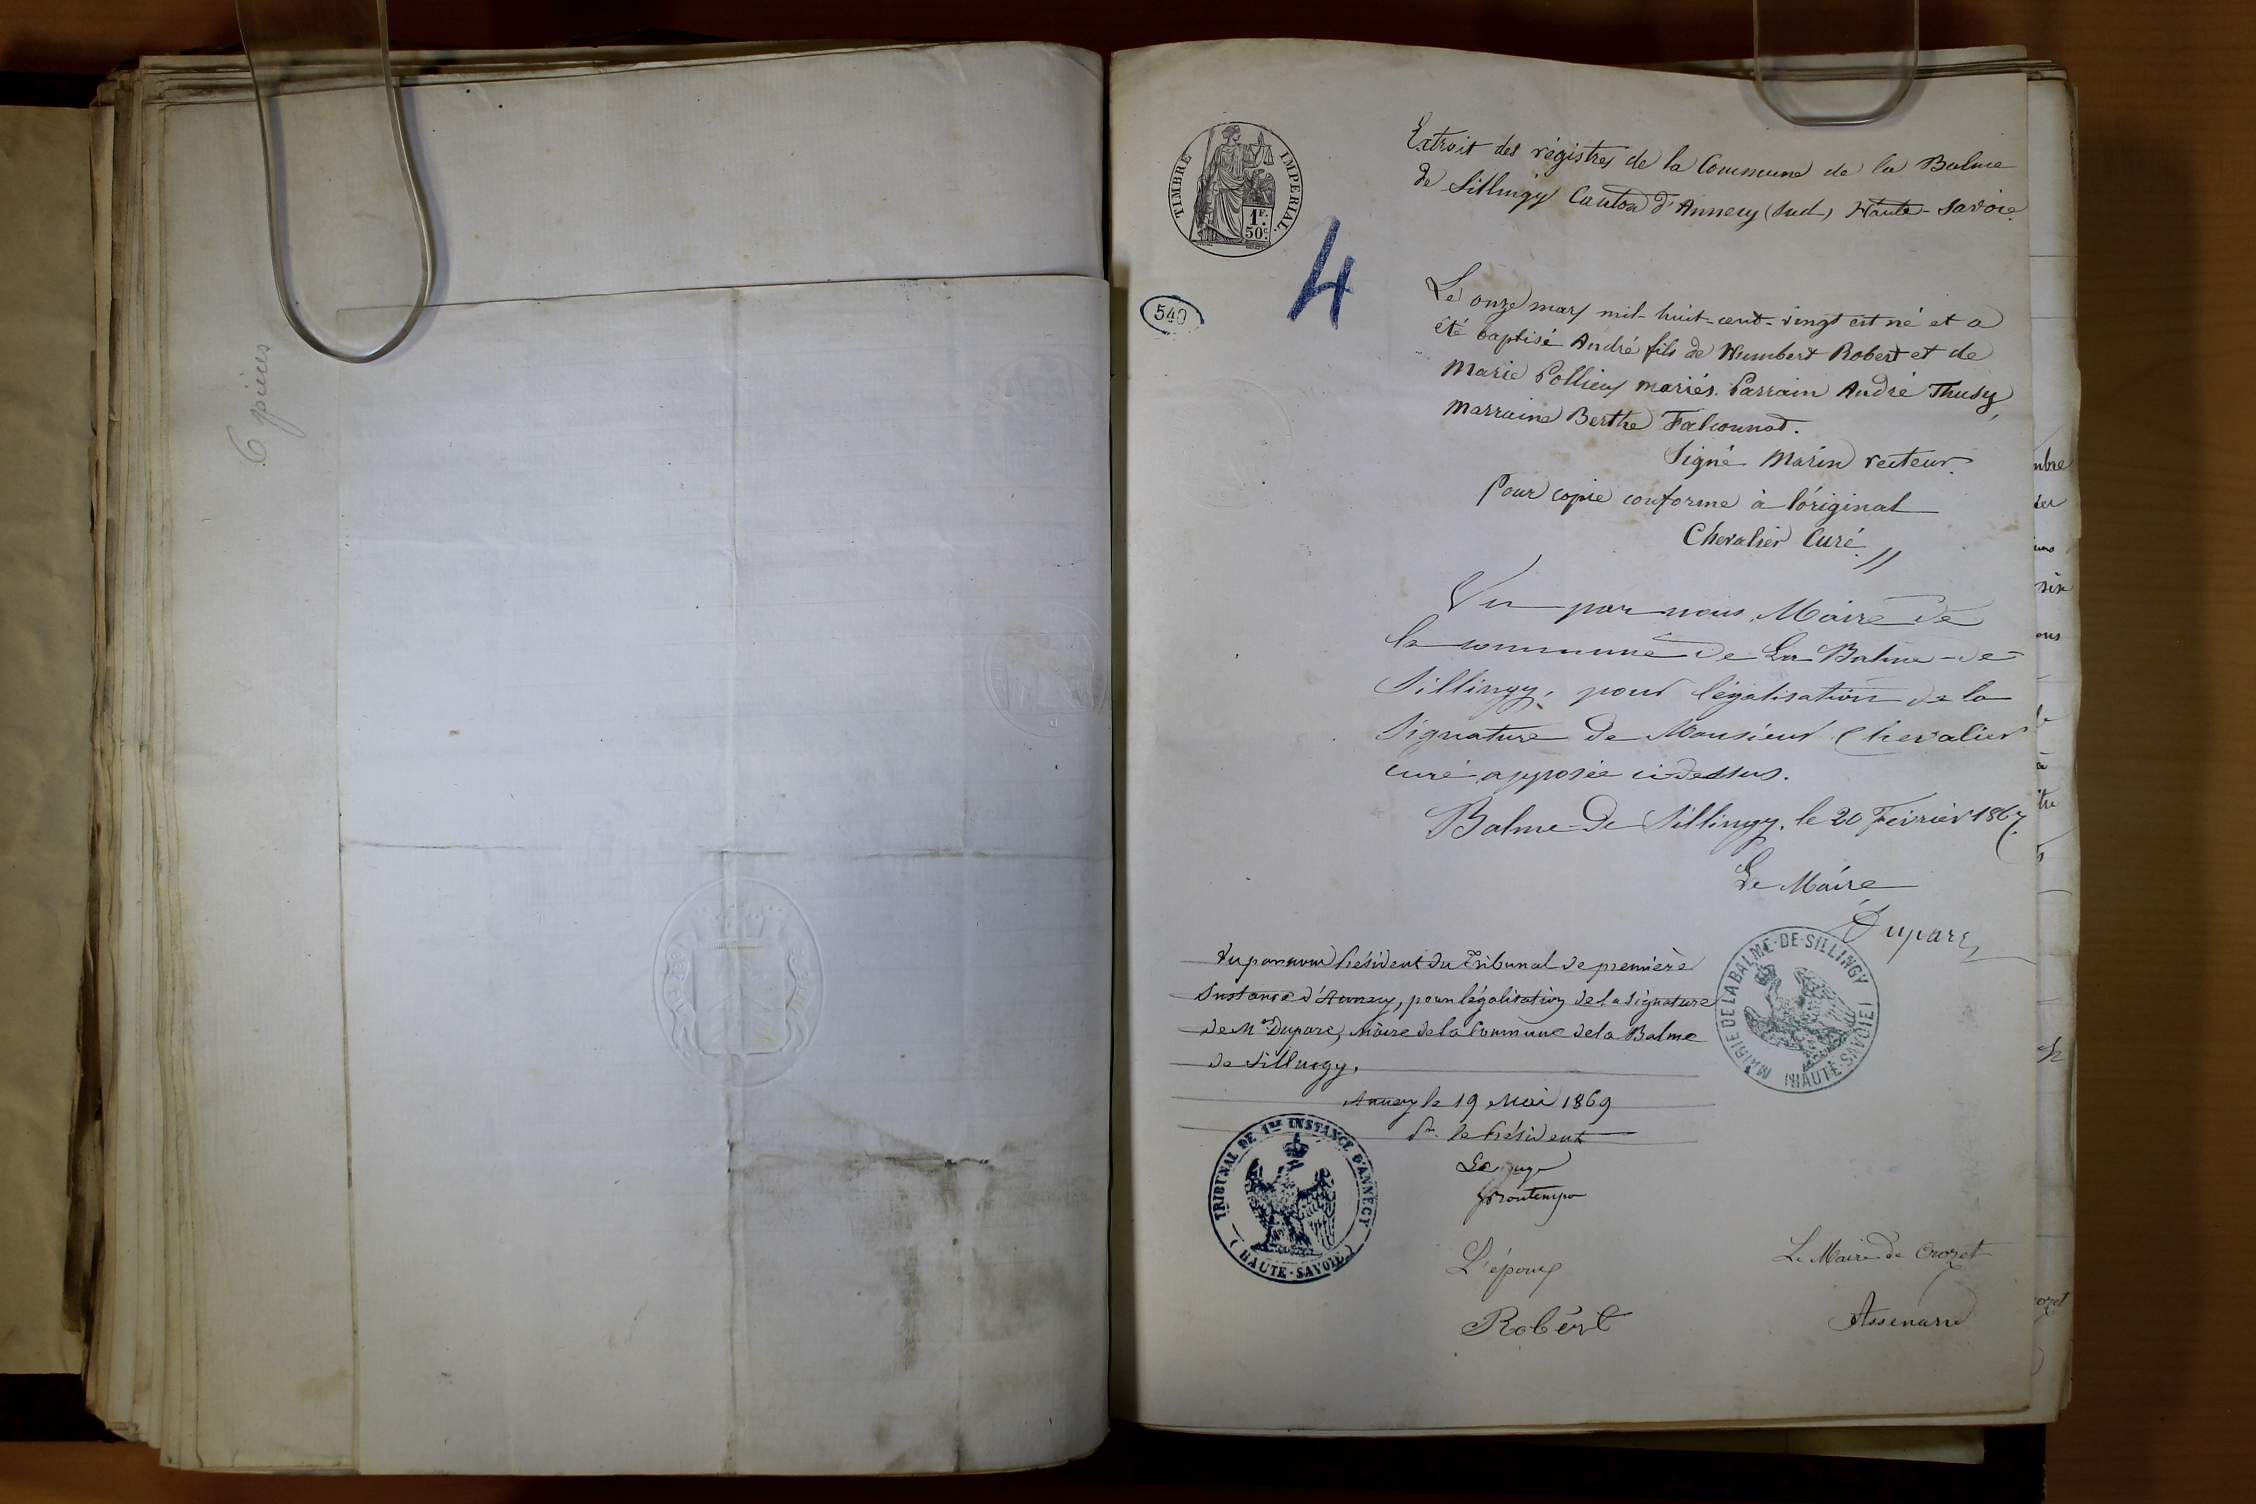 6 pièces
TIMBRE IMPERIAL.
1F.
50c.
540
4
Extrait des régistres de la Commune de la Balme
de Sillingy Canton d'Annecy (Sud) Haute-Savoie.
Le onze mars mil-huit-cent-vingt est né et a
été baptisé André fils de Humbert Robert et de
Marie Pollieux mariés. Parrain André Thusy,
Marraine Berthe Falconnat.
Signé Marin recteur.
Pour copie conforme à l'original
Chevalier Curé
Vu par nous, Maire de
la commune de La Balme-de-
Sillingy, pour légalisation de la
Signature de Monsieur Chevalier
curé apposée ci-dessus.
Balme-de Sillingy, le 20 Février 1867
Le Maire
Duparc
MAIRIE DE LA BALME-DE-SILLINGY
(HAUTE-SAVOIE)
Vu par nous Président du Tribunal de première
Instance d'Annecy, pour légalisation de la signature
de Mr Duparc, Maire de la Commune de la Balme
de Sillingy.
Annecy le 19 Mai 1869
Pr. le Président
Le juge
TRIBUNAL DE 1re INSTANCE D'ANNECY
(HAUTE-SAVOIE)
L'époux
Robert
Le Maire de Crozet